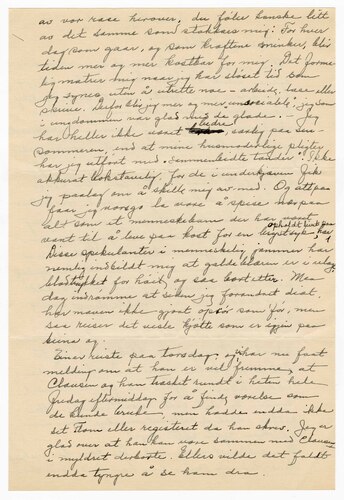 av vor rase herover, du föler kanske litt
av det samme som stokkes mig! For hver
dag som gaar, og som kraftene svinker, blir
tiden mer og mer kostbar for mig. Det
mig naar jeg har slöset tid som
jeg synes, uten å utrette noe - arbeide, lese eller
skrive. Derfor blir jeg mer og mer unsociable, jeg som
i ungdommen var glad med de glade. - Jeg
har heller ikke vært bedre, saalig paa sen-
sommeren, end at mine husmoderlige pligter
har jeg utfört med sammenbidte tænder! Ikke
akkurat bokstavelig, for de i underkjæven fik
jeg paalag om å skille mig av med. Og attpaa
faar jeg vorsgo la være å spise næspaa
alt som et menneskebarn der har
vant til å leve paa kost for en opholdt
Disse spekulanter i menneskelig jammer har
nemlig indbildt mig at galdeblæren er i ulag
blodtrykket for höit, og saa bortetter. Men
dag indrömme at siden jeg forandret diæt,
har maven ikke gjort oprör som för, men
saa reiser det vesle kjötte som er igjen paa
beina og.
Einer reiste paa torsdag, og har nu faat
melding om at han er vel fremme, at
Clausen og han trasket rundt i heten hele
fredag eftermiddag for å finde værelse som
de kunde bruke, min hadde endda ikke
set Tom eller registret da han skrev. Jeg er
glad over at han kan være sammen med Clausen
i myldret derborte. Ellers vilde det faldt
endda tyngre å se ham dra.